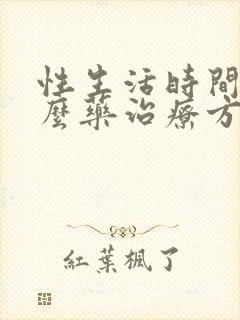 性生活時間
麼藥治療方
紅葉楓了